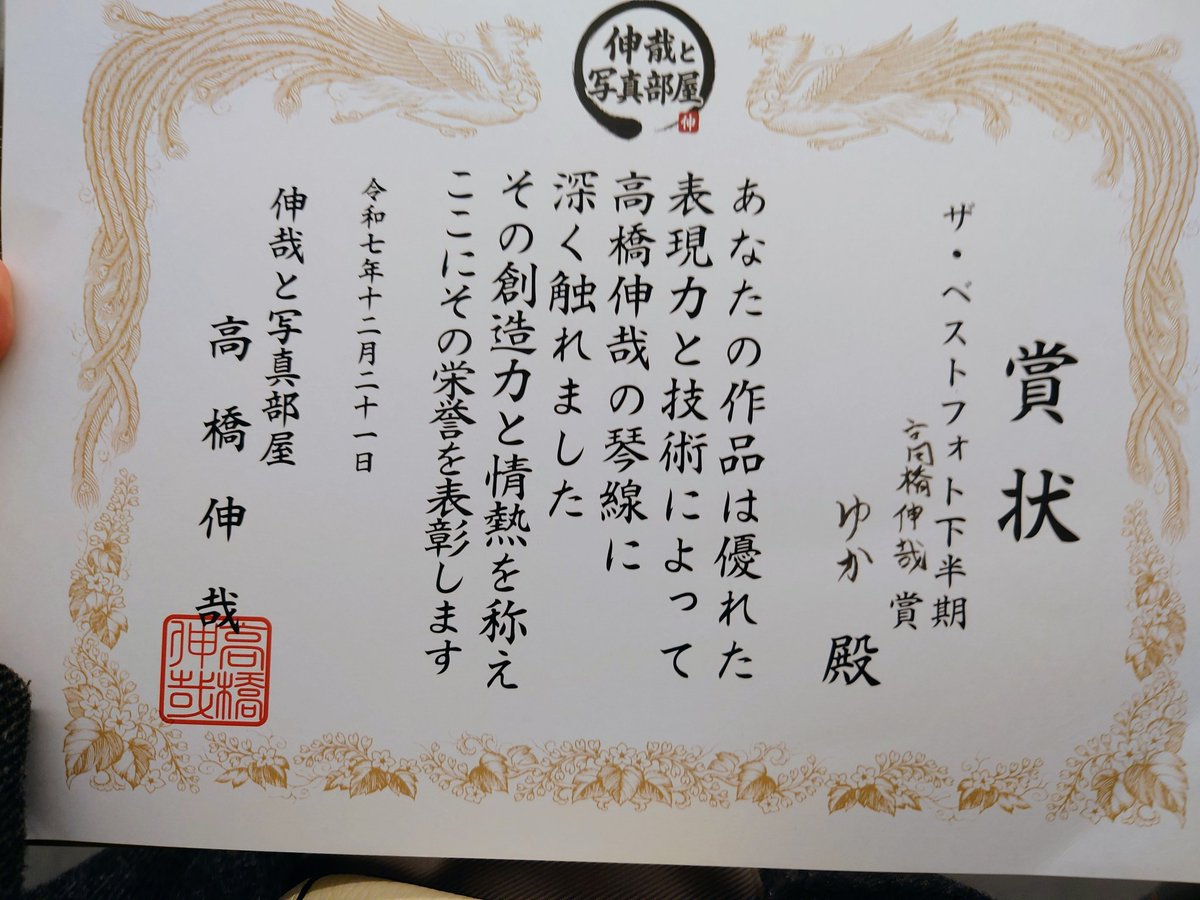 伸哉と
写真部屋
伸
賞状
ザ・ベストフォト下半期
高橋伸哉賞
ゆか 殿
あなたの作品は優れた
表現力と技術によって
高橋伸哉の琴線に
深く触れました
その創造力と情熱を称え
ここにその栄誉を表彰します
令和七年十二月二十一日
伸哉と写真部屋
高橋伸哉
高橋
伸哉